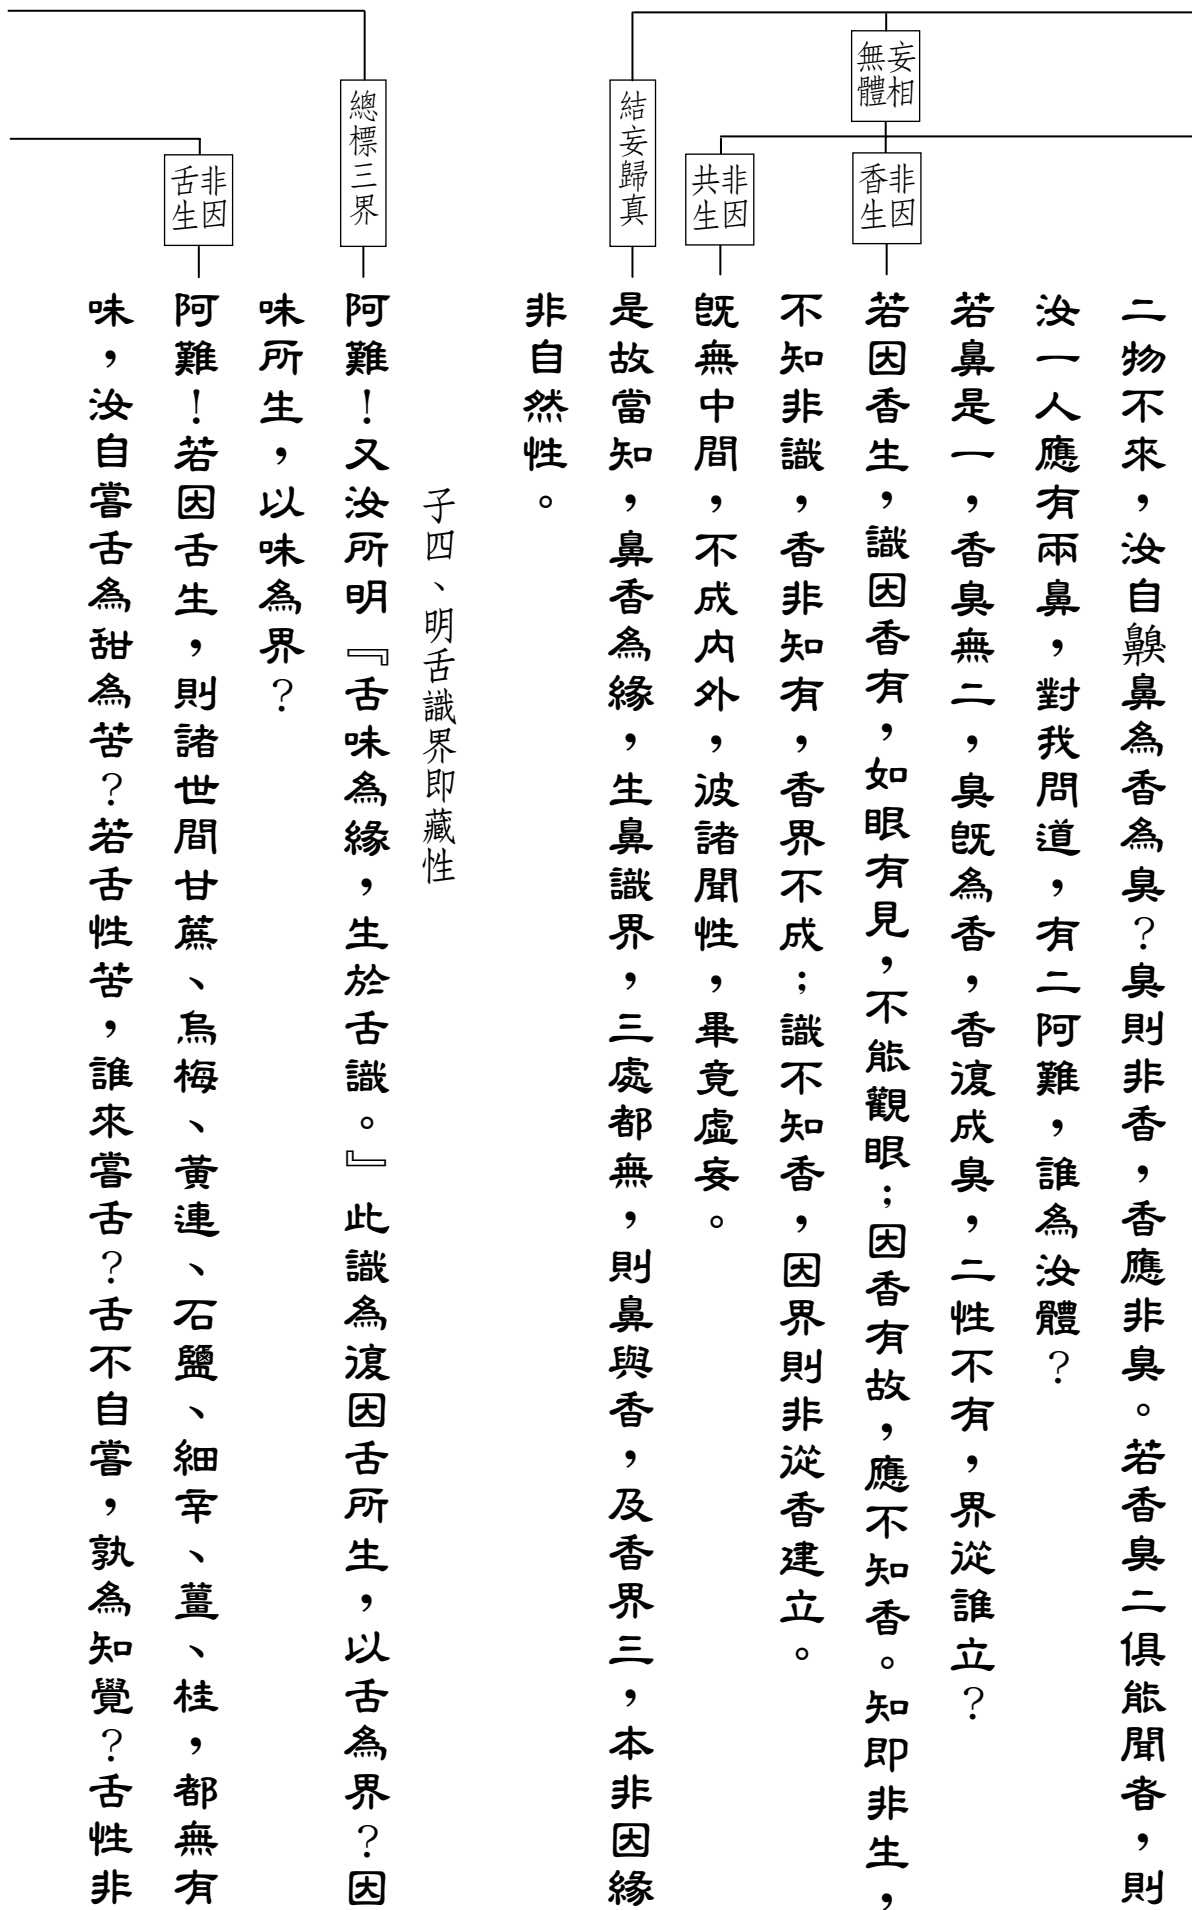 二物不來，汝自齅鼻為香為臭？臭則非香，香應非臭。若香臭二俱能聞者，則
汝一人應有兩鼻，對我問道，有二阿難，誰為汝體？
若鼻是一，香臭無二，臭既為香，香復成臭，二性不有，界從誰立？
妄相無體
非因香生
若因香生，識因香有，如眼有見，不能觀眼；因香有故，應不知香。知即非生，
不知非識，香非知有，香界不成；識不知香，因界則非從香建立。
非因共生
既無中間，不成內外，彼諸聞性，畢竟虛妄。
結妄歸真
是故當知，鼻香為緣，生鼻識界，三處都無，則鼻與香，及香界三，本非因緣
非自然性。
子四、明舌識界即藏性
總標三界
阿難！又汝所明『舌味為緣，生於舌識。』此識為復因舌所生，以舌為界？因
味所生，以味為界？
非因舌生
阿難！若因舌生，則諸世間甘蔗、烏梅、黃連、石鹽、細辛、薑、桂，都無有
味，汝自嘗舌為甜為苦？若舌性苦，誰來嘗舌？舌不自嘗，孰為知覺？舌性非